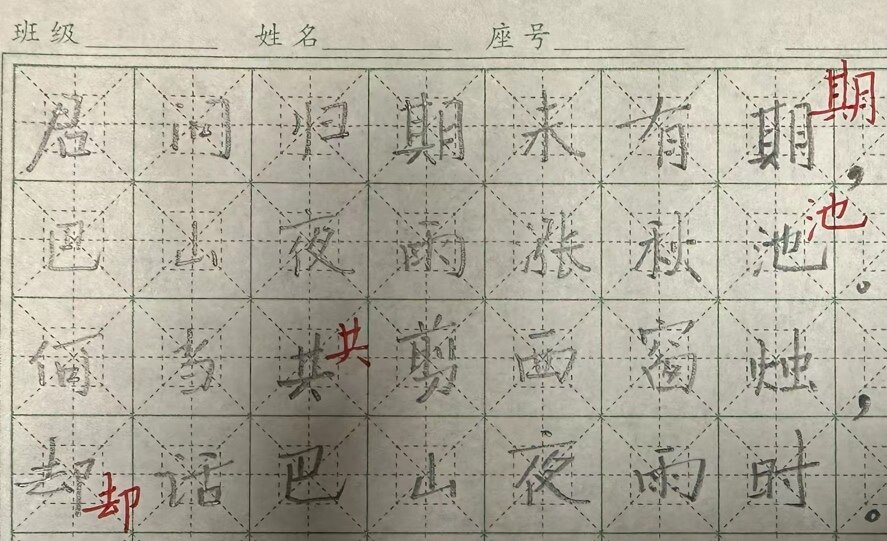 班级 姓名 座号
君问归期未有期期，
巴山夜雨涨秋池池。
何当共共剪西窗烛，
却却话巴山夜雨时。